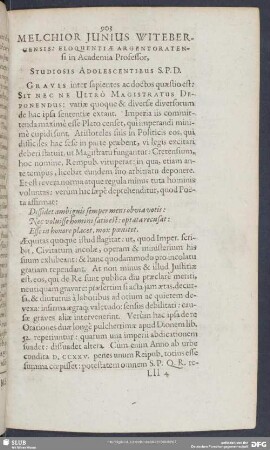 903
MELCHIOR JUNIUS WITEBER-
GENSIS: ELOQUENTIÆ ARGENTORATEN-
si in Academia Professor,
STUDIOSIS ADOLESCENTIBUS S.P.D.
GRAVIS inter sapientes ac doctos quæstio est?
SIT NEC NE ULTRÒ MAGISTRATUS DE-
PONENDUS: variæ quoque & diversæ diversorum
de hac ipsa sententiæ extant. Imperia iis commit-
tenda maximè esse Plato censet, qui imperandi mini-
mè cupidi sunt. Aristoteles suis in Politicis eos, qui
difficiles hac sese in parte præbent, vi legis excitari
deberi statuit. ut Magistratu fungantur. Cretensium,
hoc nomine, Rempub. vituperat: in qua, etiam an-
te tempus, licebat eundem suo arbitratu deponere.
Et est res ex norma atque regula minus tuta hominis
voluntas: verum hic sæpè deprehenditur, quod Poë-
ta affirmat:
semper mens obvia vatis:
Noc voluisse homini satu est: optata recusat:
Esse in honore placet, mox pœnitet.
Æquitas quoque illud flagitat: ut, quod Imper. scri-
bit, Civitatum incolæ, operam & ministerium hu-
iusmodi exhibeant: & hanc quodammodo pro incolatu
gratiam rependant. At non minus & illud Justitiæ
est: eos, qui de Re sunt publica diu præclarè meriti,
quentiquam gravare: præsertim si acta jam ætas, decur-
sa, & diuturna à laboribus ad otium ac quietem de-
vexa: infirma ægraq; valetudo: sensus debilitati: cau-
sæ graves aliæ intervenerint. Versari hac ipsa de re
Orationes duæ longè pulcherrimæ apud Dionem lib.
52. reperiuntur: quarum una imperii abdicationem
suadet: dissuadet altera. Cum enim Anno ab urbe
condita D. CCXXV. penes unum Reipub. totius esse
summa cœpisset: potestatem omnem S.P.Q.R. re-
Lll 4
SLUB